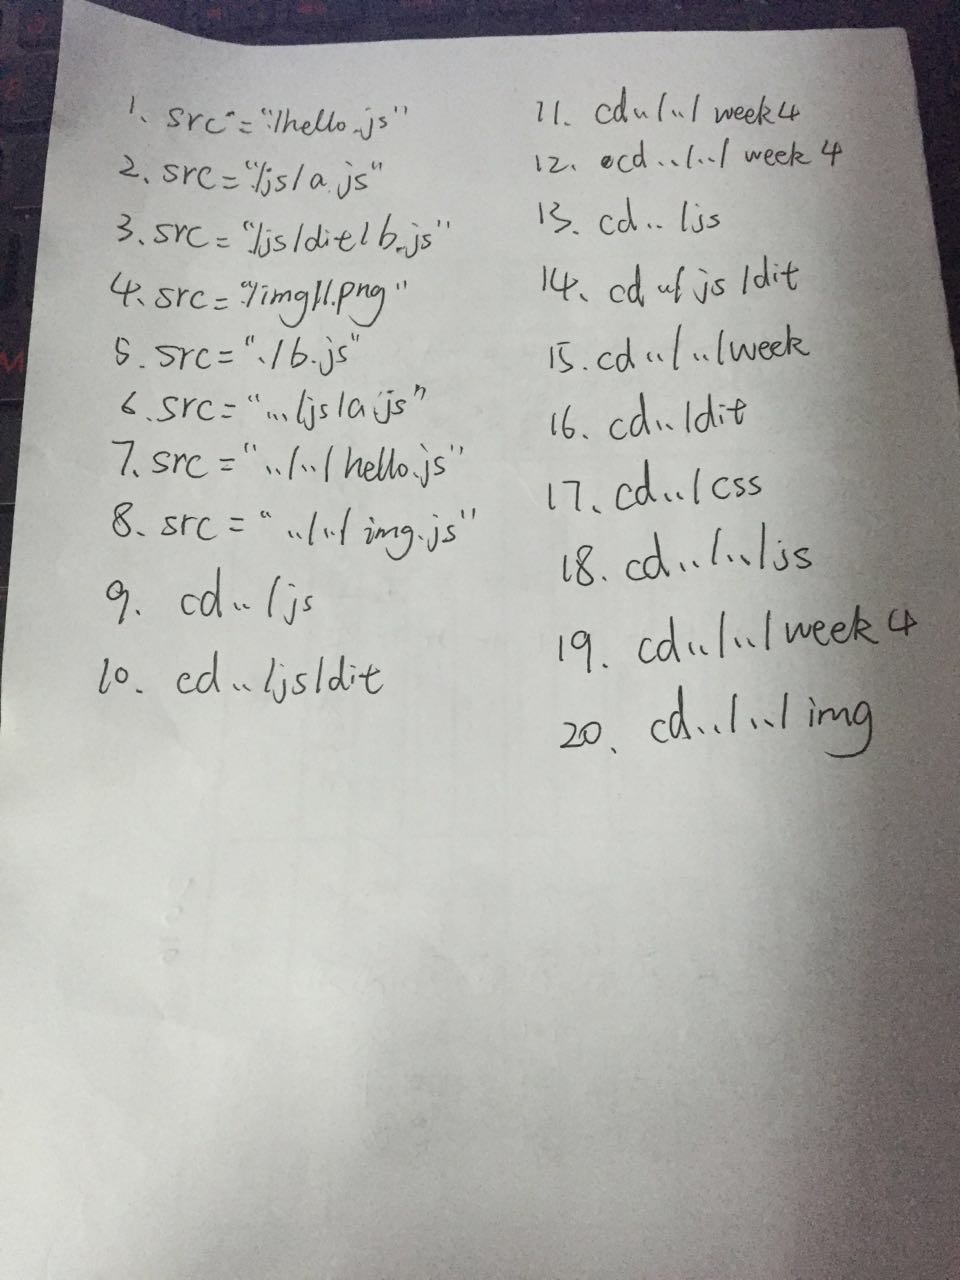 1. src="./hello.js"
2. src="./js/a.js"
3. src="./js/dit/b.js"
4. src="./img/1.png"
5. src="./b.js"
6. src="../js/a.js"
7. src="../../hello.js"
8. src="../../img.js"
9. cd../js
10. cd../js/dit
11. cd../../week4
12. cd../../week 4
13. cd../js
14. cd ../js/dit
15. cd../../week
16. cd../dit
17. cd../css
18. cd../../js
19. cd../../week 4
20. cd../../img